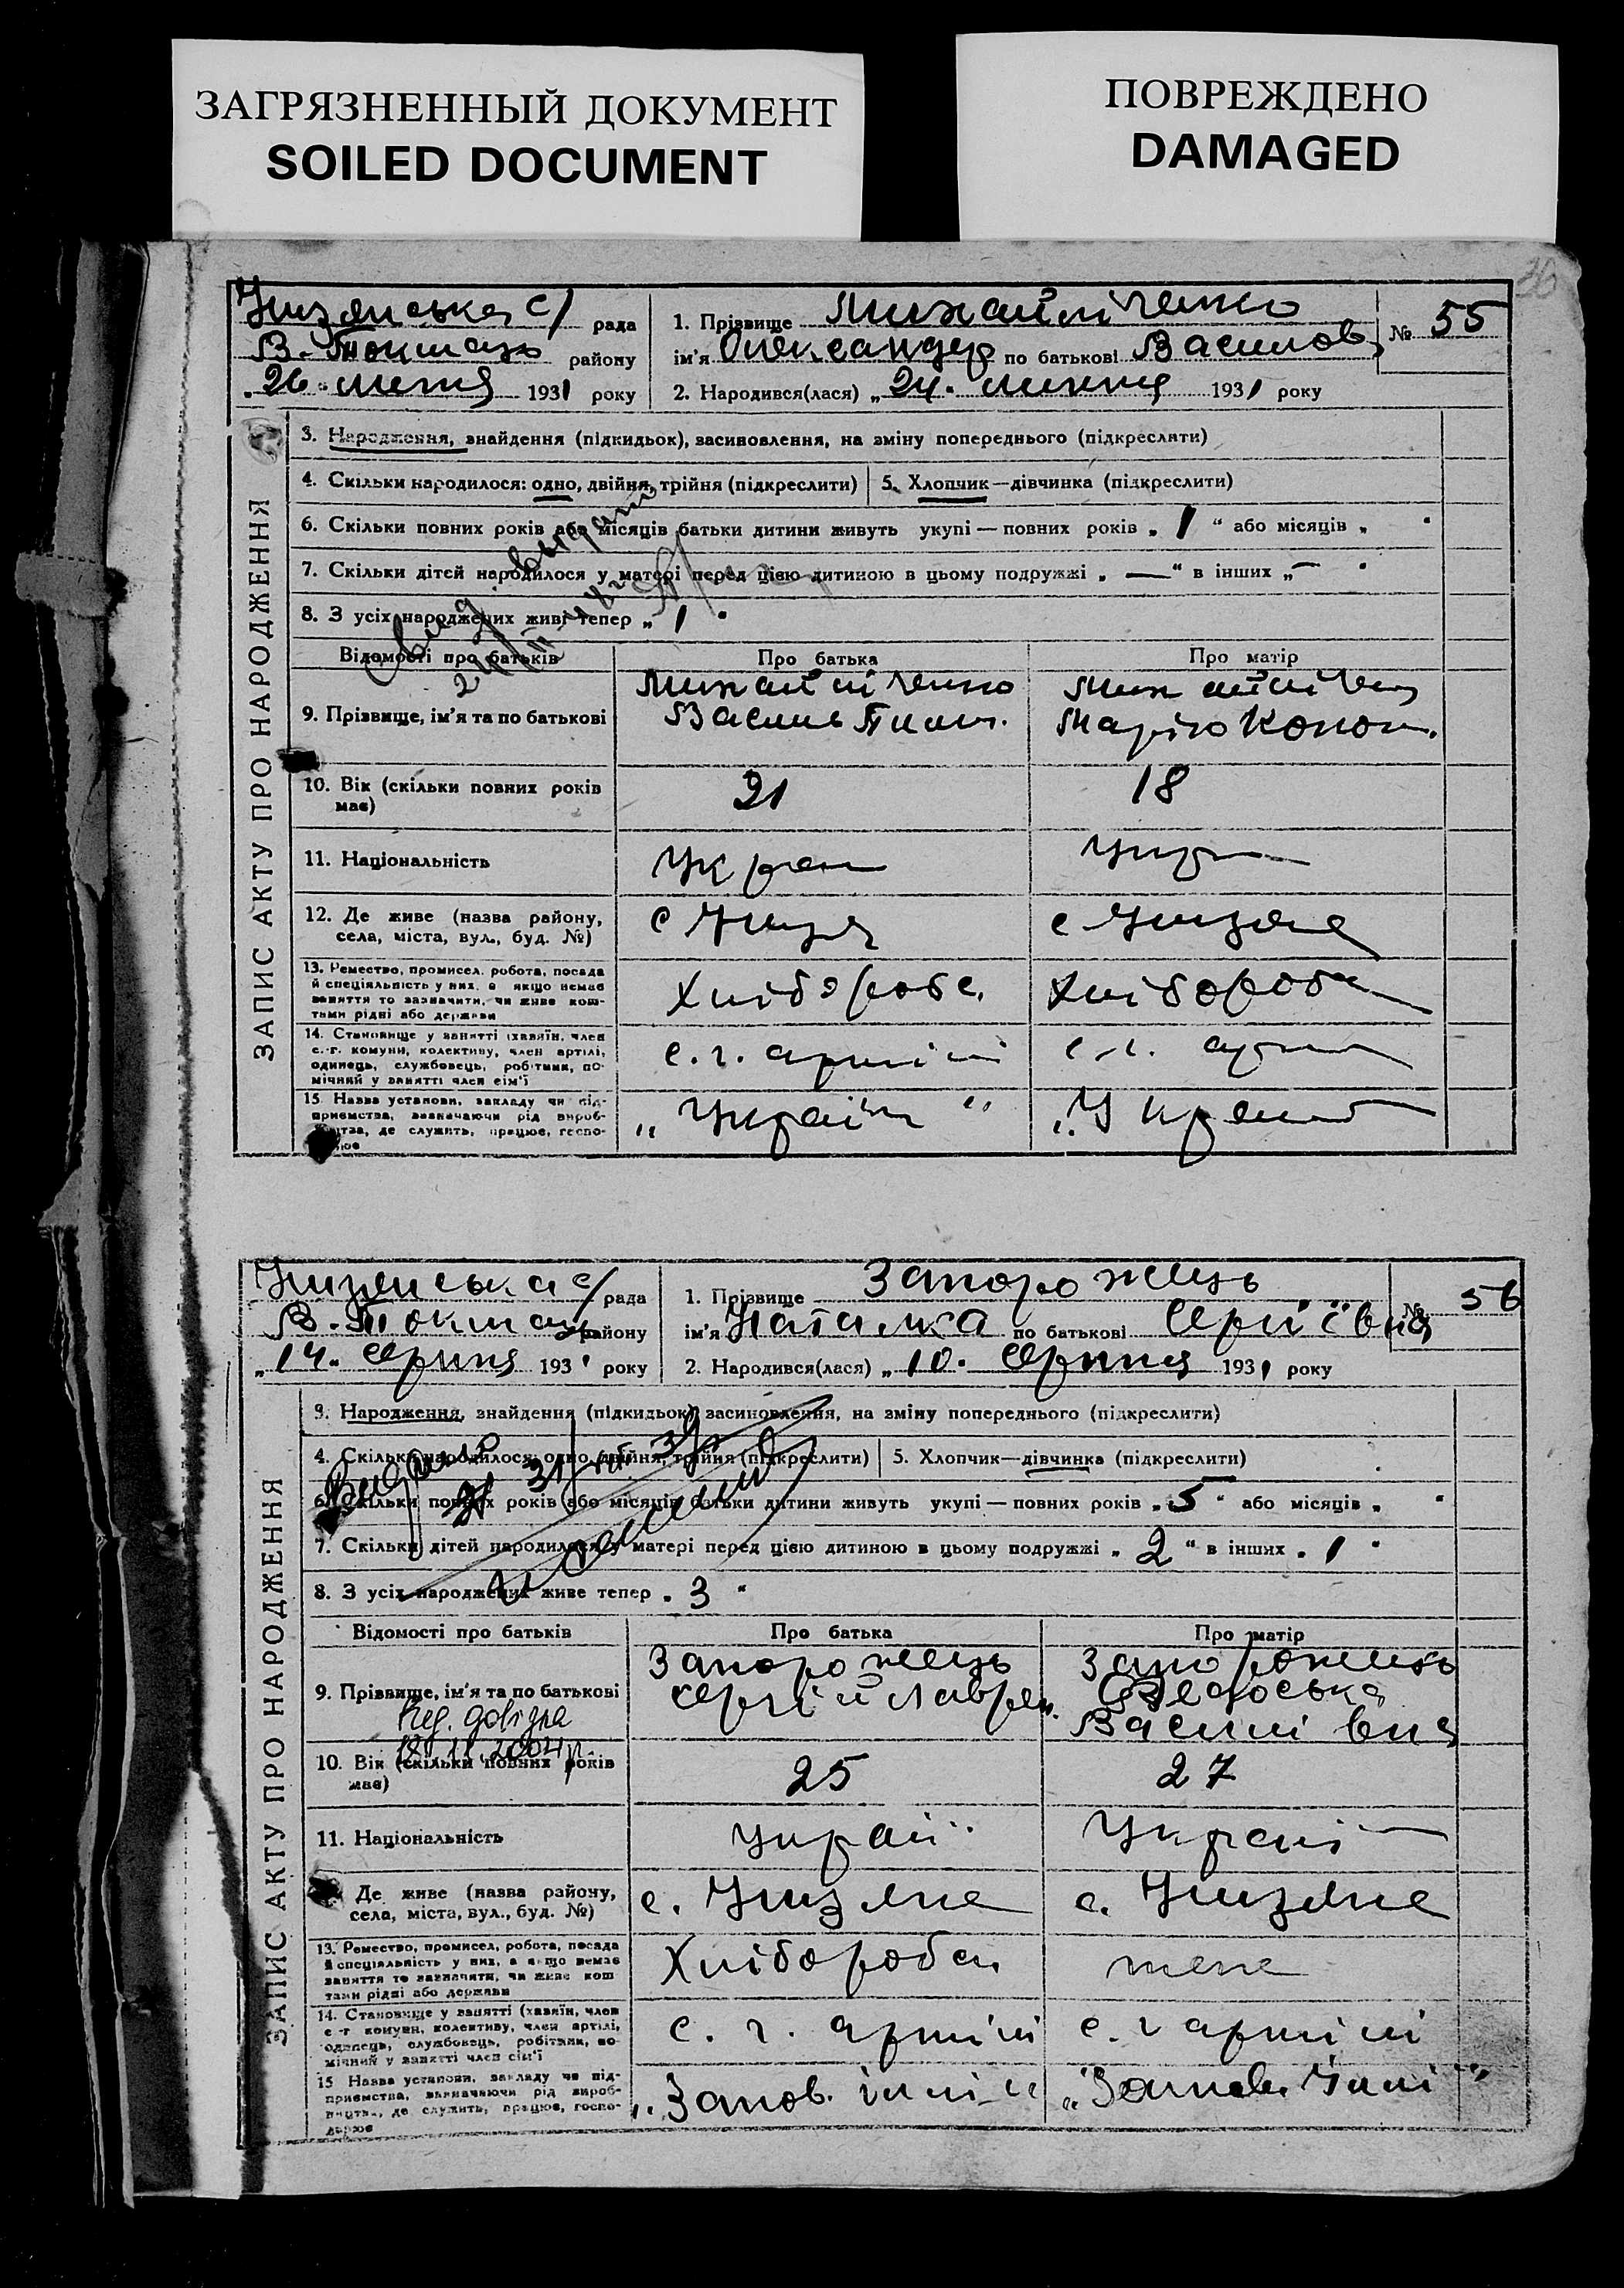 ЗАГРЯЗНЕННЫЙ ДОКУМЕНТ
SOILED DOCUMENT
ПОВРЕЖДЕНО
DAMAGED
36
ЗАПИС АКТУ ПРО НАРОДЖЕННЯ
рада
В-Токмаць району
"26" липня 1931 року
1. Прізвище Михайліченко
№ 55
ім'я Олександер по батькові Василов
2. Народився(лася) „24" липня 1931 року
3. Народження, знайдення (підкидьок), засиновлення, на зміну попереднього (підкреслити)
4. Скільки народилося: одно, двійня, трійня (підкреслити)
5. Хлопчик—дівчинка (підкреслити)
6. Скільки повних років або місяців батьки дитини живуть укупі — повних років „ 1 " або місяців „ "
7. Скільки дітей народилося у матері перед цією дитиною в цьому подружжі „ — " в інших „ — "
8. З усіх народжених живі тепер „ 1 "
Відомості про батьків
Про батька
Про матір
9. Прізвище, ім'я та по батькові
Михайліченко
Василь
Марію Конон.
10. Вік (скільки повних років має)
21
18
11. Національність
Украї
Укр
12. Де живе (назва району, села, міста, вул., буд. №)
13. Ремество, промисел, робота, посада й спеціяльність у них, а якщо немає заняття то зазначити, чи живе коштами рідні або держави
Хлібороб
Хлібороб
14. Становище у занятті (хазяїн, член с.-г. комуни, колективу, член артілі, одинець, службовець, робітник, помічний у занятті член сім'ї
с. г. артілі
с. г. арт
15. Назва установи, закладу чи підприємства, зазначаючи рід виробництва, де служить, працює, господарює
„Україн"
„Україн
ЗАПИС АКТУ ПРО НАРОДЖЕННЯ
рада
В-Токмац району
„14" серпня 1931 року
1. Прізвище Запорожець
№ 56
ім'я Наталка по батькові Сергіївна
2. Народився(лася) „10" серпня 1931 року
3. Народження, знайдення (підкидьок) засиновлення, на зміну попереднього (підкреслити)
4. Скільки народилося: одно, двійня, трійня (підкреслити)
5. Хлопчик—дівчинка (підкреслити)
6. Скільки повних років або місяців батьки дитини живуть укупі — повних років „ 5 " або місяців „ "
7. Скільки дітей народилося у матері перед цією дитиною в цьому подружжі „ 2 " в інших „ 1 "
8. З усіх народжених живе тепер „ 3 "
Відомості про батьків
Про батька
Про матір
9. Прізвище, ім'я та по батькові
Запорожець
Сергій Лаврен.
Запорожець
Федоська
Василівна
довідка
18.11.2004р.
10. Вік (скільки повних років має)
25
27
11. Національність
Украї
Украї
Де живе (назва району, села, міста, вул., буд. №)
13. Ремество, промисел, робота, посада й спеціяльність у них, а якщо немає заняття то зазначити, чи живе коштами рідні або держави
Хлібороб
14. Становище у занятті (хазяїн, член с.-г. комуни, колективу, член артілі, одинець, службовець, робітник, помічний у занятті член сім'ї
с. г. артілі
с. г артілі
15. Назва установи, закладу чи підприємства, зазначаючи рід виробництва, де служить, працює, господарює
„Запов. Іллі"
„Запов. Іллі"